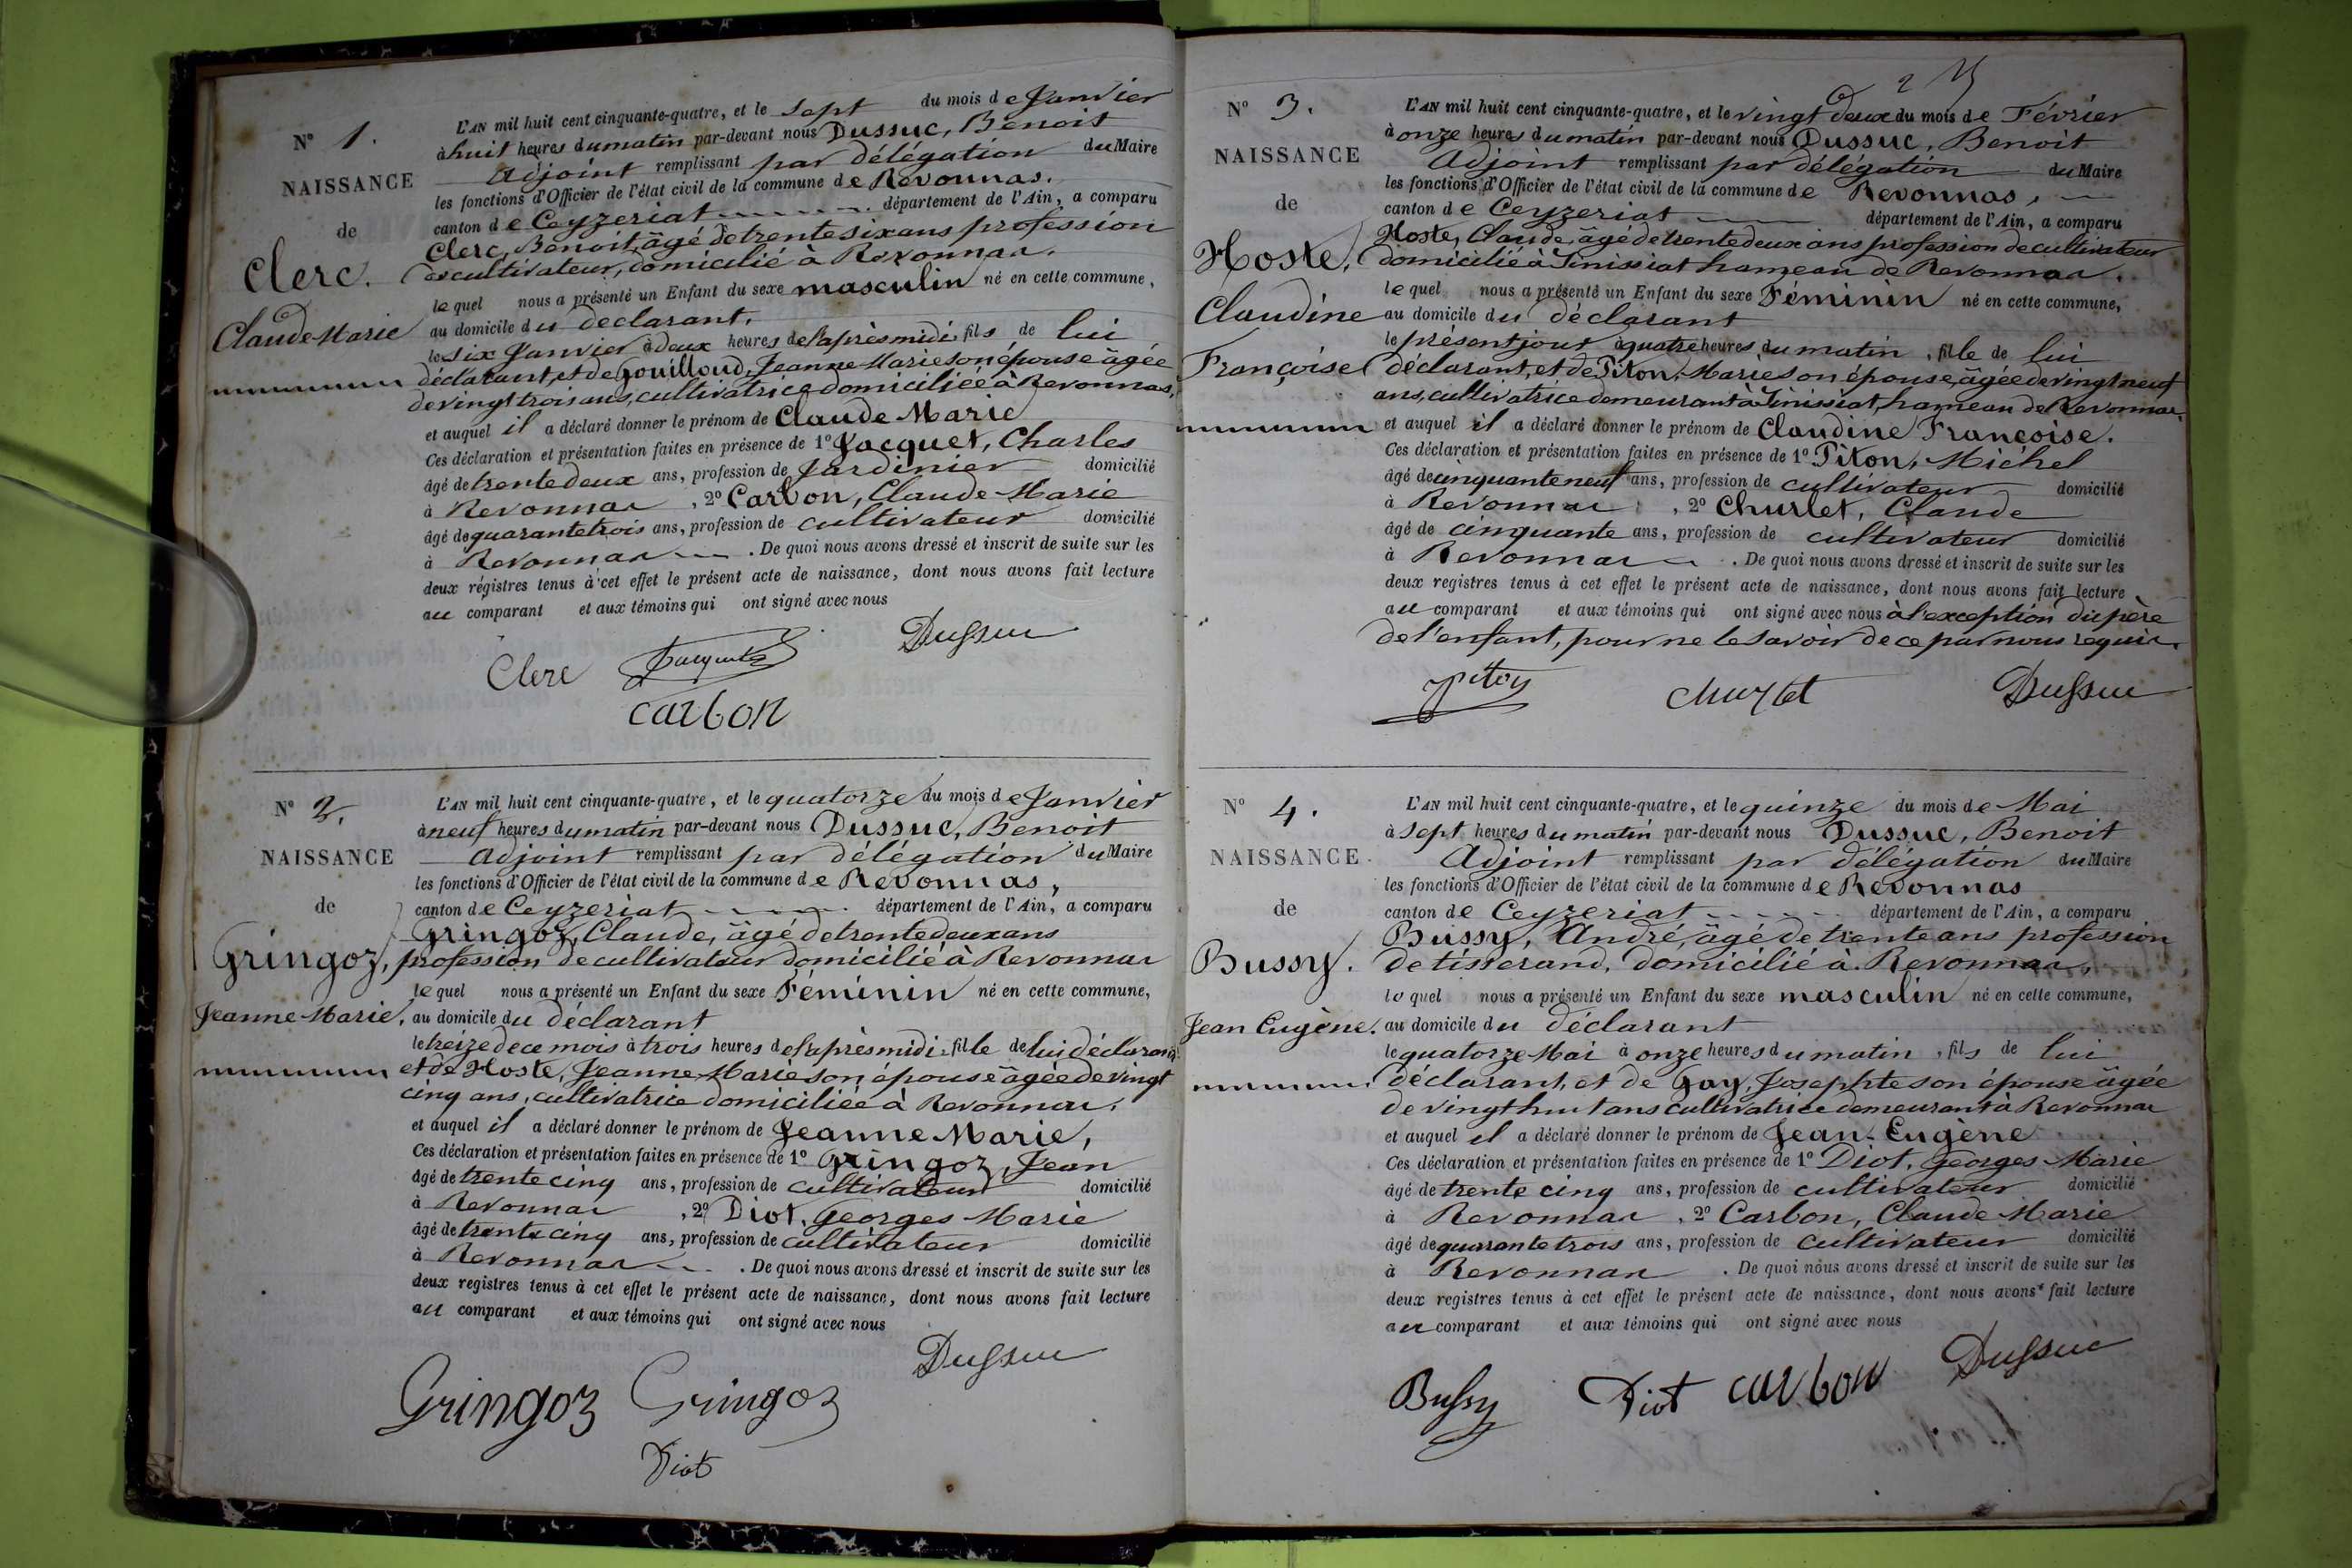 N° 1.
NAISSANCE
de
Clerc.
Claude Marie
L'AN mil huit cent cinquante-quatre, et le sept du mois de Janvier
à huit heures du matin par-devant nous Dussuc, Benoit
Adjoint remplissant par délégation du Maire
les fonctions d'Officier de l'état civil de la commune de Revonnas.
canton de Ceyzeriat département de l'Ain, a comparu
Clerc, Benoit, âgé de trente six ans profession
de cultivateur, domicilié à Revonnas.
lequel nous a présenté un Enfant du sexe masculin né en cette commune,
au domicile du déclarant.
le six Janvier à deux heures de l'après midi, fils de lui
déclarant, et de Gouilloud, Jeanne Marie son épouse âgée
de vingt trois ans, cultivatrice domiciliée à Revonnas,
et auquel il a déclaré donner le prénom de Claude Marie
Ces déclaration et présentation faites en présence de 1° Jacquet, Charles
âgé de trente deux ans, profession de Jardinier domicilié
à Revonnas, 2° Carbon, Claude Marie
âgé de quarante trois ans, profession de cultivateur domicilié
à Revonnas. De quoi nous avons dressé et inscrit de suite sur les
deux régistres tenus à cet effet le présent acte de naissance, dont nous avons fait lecture
au comparant et aux témoins qui ont signé avec nous
Clerc Jacquet Dussuc
carbon
N° 2.
NAISSANCE
de
Gringoz,
Jeanne Marie,
L'AN mil huit cent cinquante-quatre, et le quatorze du mois de Janvier
à neuf heures du matin par-devant nous Dussuc, Benoit
Adjoint remplissant par délégation du Maire
les fonctions d'Officier de l'état civil de la commune de Revonnas,
canton de Ceyzeriat département de l'Ain, a comparu
Gringoz, Claude, âgé de trente deux ans
profession de cultivateur domicilié à Revonnas
lequel nous a présenté un Enfant du sexe Féminin né en cette commune,
au domicile du déclarant
le treize de ce mois à trois heures de l'après midi, fille de lui déclarant
et de Hoste, Jeanne Marie son épouse âgée de vingt
cinq ans, cultivatrice domiciliée à Revonnas.
et auquel il a déclaré donner le prénom de Jeanne Marie,
Ces déclaration et présentation faites en présence de 1° Gringoz, Jean
âgé de trente cinq ans, profession de cultivateur domicilié
à Revonnas, 2° Diot, Georges Marie
âgé de trente cinq ans, profession de cultivateur domicilié
à Revonnas. De quoi nous avons dressé et inscrit de suite sur les
deux registres tenus à cet effet le présent acte de naissance, dont nous avons fait lecture
au comparant et aux témoins qui ont signé avec nous
Dussuc
Gringoz Gringoz
Diot
2
N° 3.
NAISSANCE
de
Hoste,
Claudine
Françoise
L'AN mil huit cent cinquante-quatre, et le vingt deux du mois de Février
à onze heures du matin par-devant nous Dussuc, Benoit
Adjoint remplissant par délégation du Maire
les fonctions d'Officier de l'état civil de la commune de Revonnas,
canton de Ceyzeriat département de l'Ain, a comparu
Hoste, Claude, âgé de trente deux ans profession de cultivateur
domicilié à Sinissiat hameau de Revonnas.
lequel nous a présenté un Enfant du sexe Féminin né en cette commune,
au domicile du déclarant
le présent jour à quatre heures du matin, fille de lui
déclarant, et de Piton, Marie son épouse, âgée de vingt neuf
ans, cultivatrice demeurant à Sinissiat, hameau de Revonnas,
et auquel il a déclaré donner le prénom de Claudine Françoise.
Ces déclaration et présentation faites en présence de 1° Piton, Michel
âgé de cinquante neuf ans, profession de cultivateur domicilié
à Revonnas, 2° Churlet, Claude
âgé de cinquante ans, profession de cultivateur domicilié
à Revonnas. De quoi nous avons dressé et inscrit de suite sur les
deux registres tenus à cet effet le présent acte de naissance, dont nous avons fait lecture
au comparant et aux témoins qui ont signé avec nous à l'exception du père
de l'enfant, pour ne le savoir de ce par nous requis.
piton churlet Dussuc
N° 4.
NAISSANCE
de
Bussy.
Jean Eugène.
L'AN mil huit cent cinquante-quatre, et le quinze du mois de Mai
à sept heures du matin par-devant nous Dussuc, Benoit
Adjoint remplissant par délégation du Maire
les fonctions d'Officier de l'état civil de la commune de Revonnas
canton de Ceyzeriat département de l'Ain, a comparu
Bussy, André, âgé de trente ans profession
de tisserand, domicilié à Revonnas,
lequel nous a présenté un Enfant du sexe masculin né en cette commune,
au domicile du déclarant
le quatorze Mai à onze heures du matin, fils de lui
déclarant, et de Gay, Josephte son épouse âgée
de vingt huit ans cultivatrice demeurant à Revonnas
et auquel il a déclaré donner le prénom de Jean-Eugène
Ces déclaration et présentation faites en présence de 1° Diot, Georges Marie
âgé de trente cinq ans, profession de cultivateur domicilié
à Revonnas, 2° Carbon, Claude Marie
âgé de quarante trois ans, profession de cultivateur domicilié
à Revonnas. De quoi nous avons dressé et inscrit de suite sur les
deux registres tenus à cet effet le présent acte de naissance, dont nous avons fait lecture
au comparant et aux témoins qui ont signé avec nous
Bussy Diot carbon Dussuc